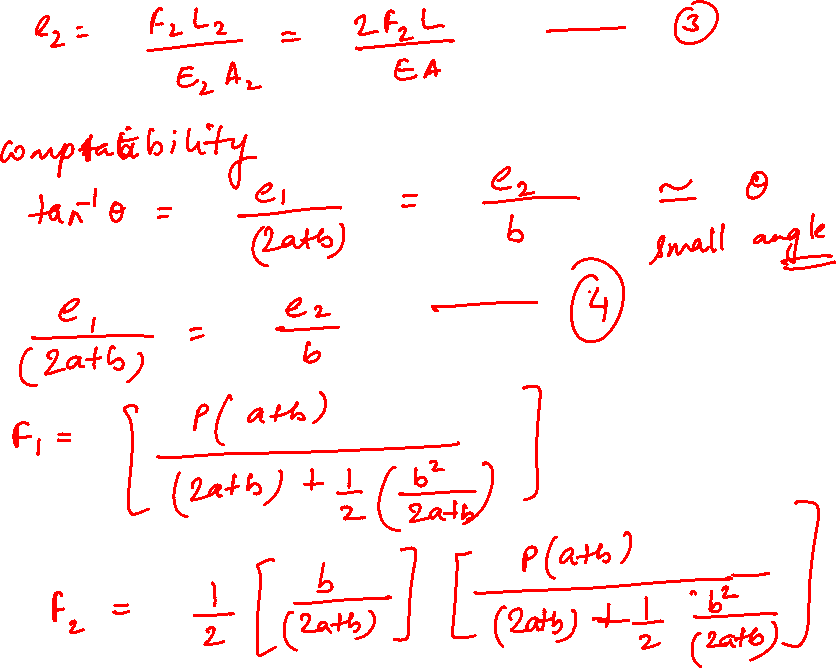 e₂ = F₂L₂ / E₂A₂ = 2F₂L / EA —— ③
comptatibility
tan⁻¹ θ = e₁ / (2a+b) = e₂ / b ≃ θ
small angle
e₁ / (2a+b) = e₂ / b —— ④
F₁ = [ P(a+b) / (2a+b) + 1/2 (b² / 2a+b) ]
F₂ = 1/2 [ b / (2a+b) ] [ P(a+b) / (2a+b) + 1/2 b² / (2a+b) ]